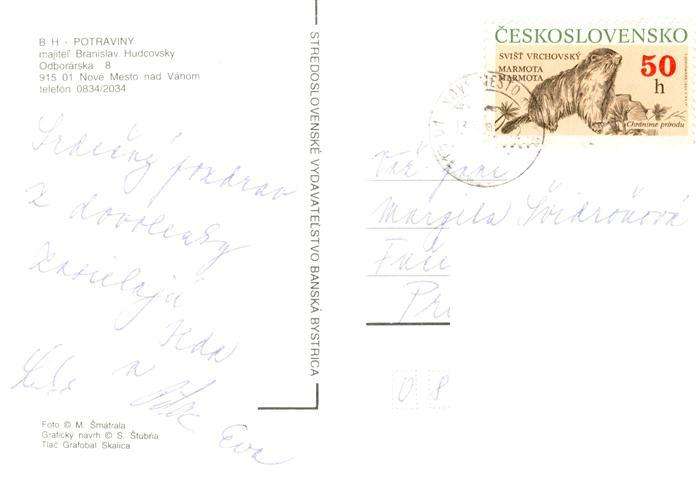 B H - POTRAVINY
majiteľ Branislav Hudcovsky
Odborárska 8
915 01 Nové Mesto nad Vánom
telefón 0834/2034
Srdečný pozdrav
z dovolenky
zasielajú
a
Eva
Foto © M. Šmátrala
Grafický navrh © S. Štubňa
Tlač Grafobal Skalica
STREDOSLOVENSKÉ VYDAVATEĽSTVO BANSKÁ BYSTRICA
ČESKOSLOVENSKO
SVIŠŤ VRCHOVSKÝ
MARMOTA
MARMOTA
50
h
Chráníme prírodu
MESTO
Váž. pani
Margita Švidroňová
Pri
0 8